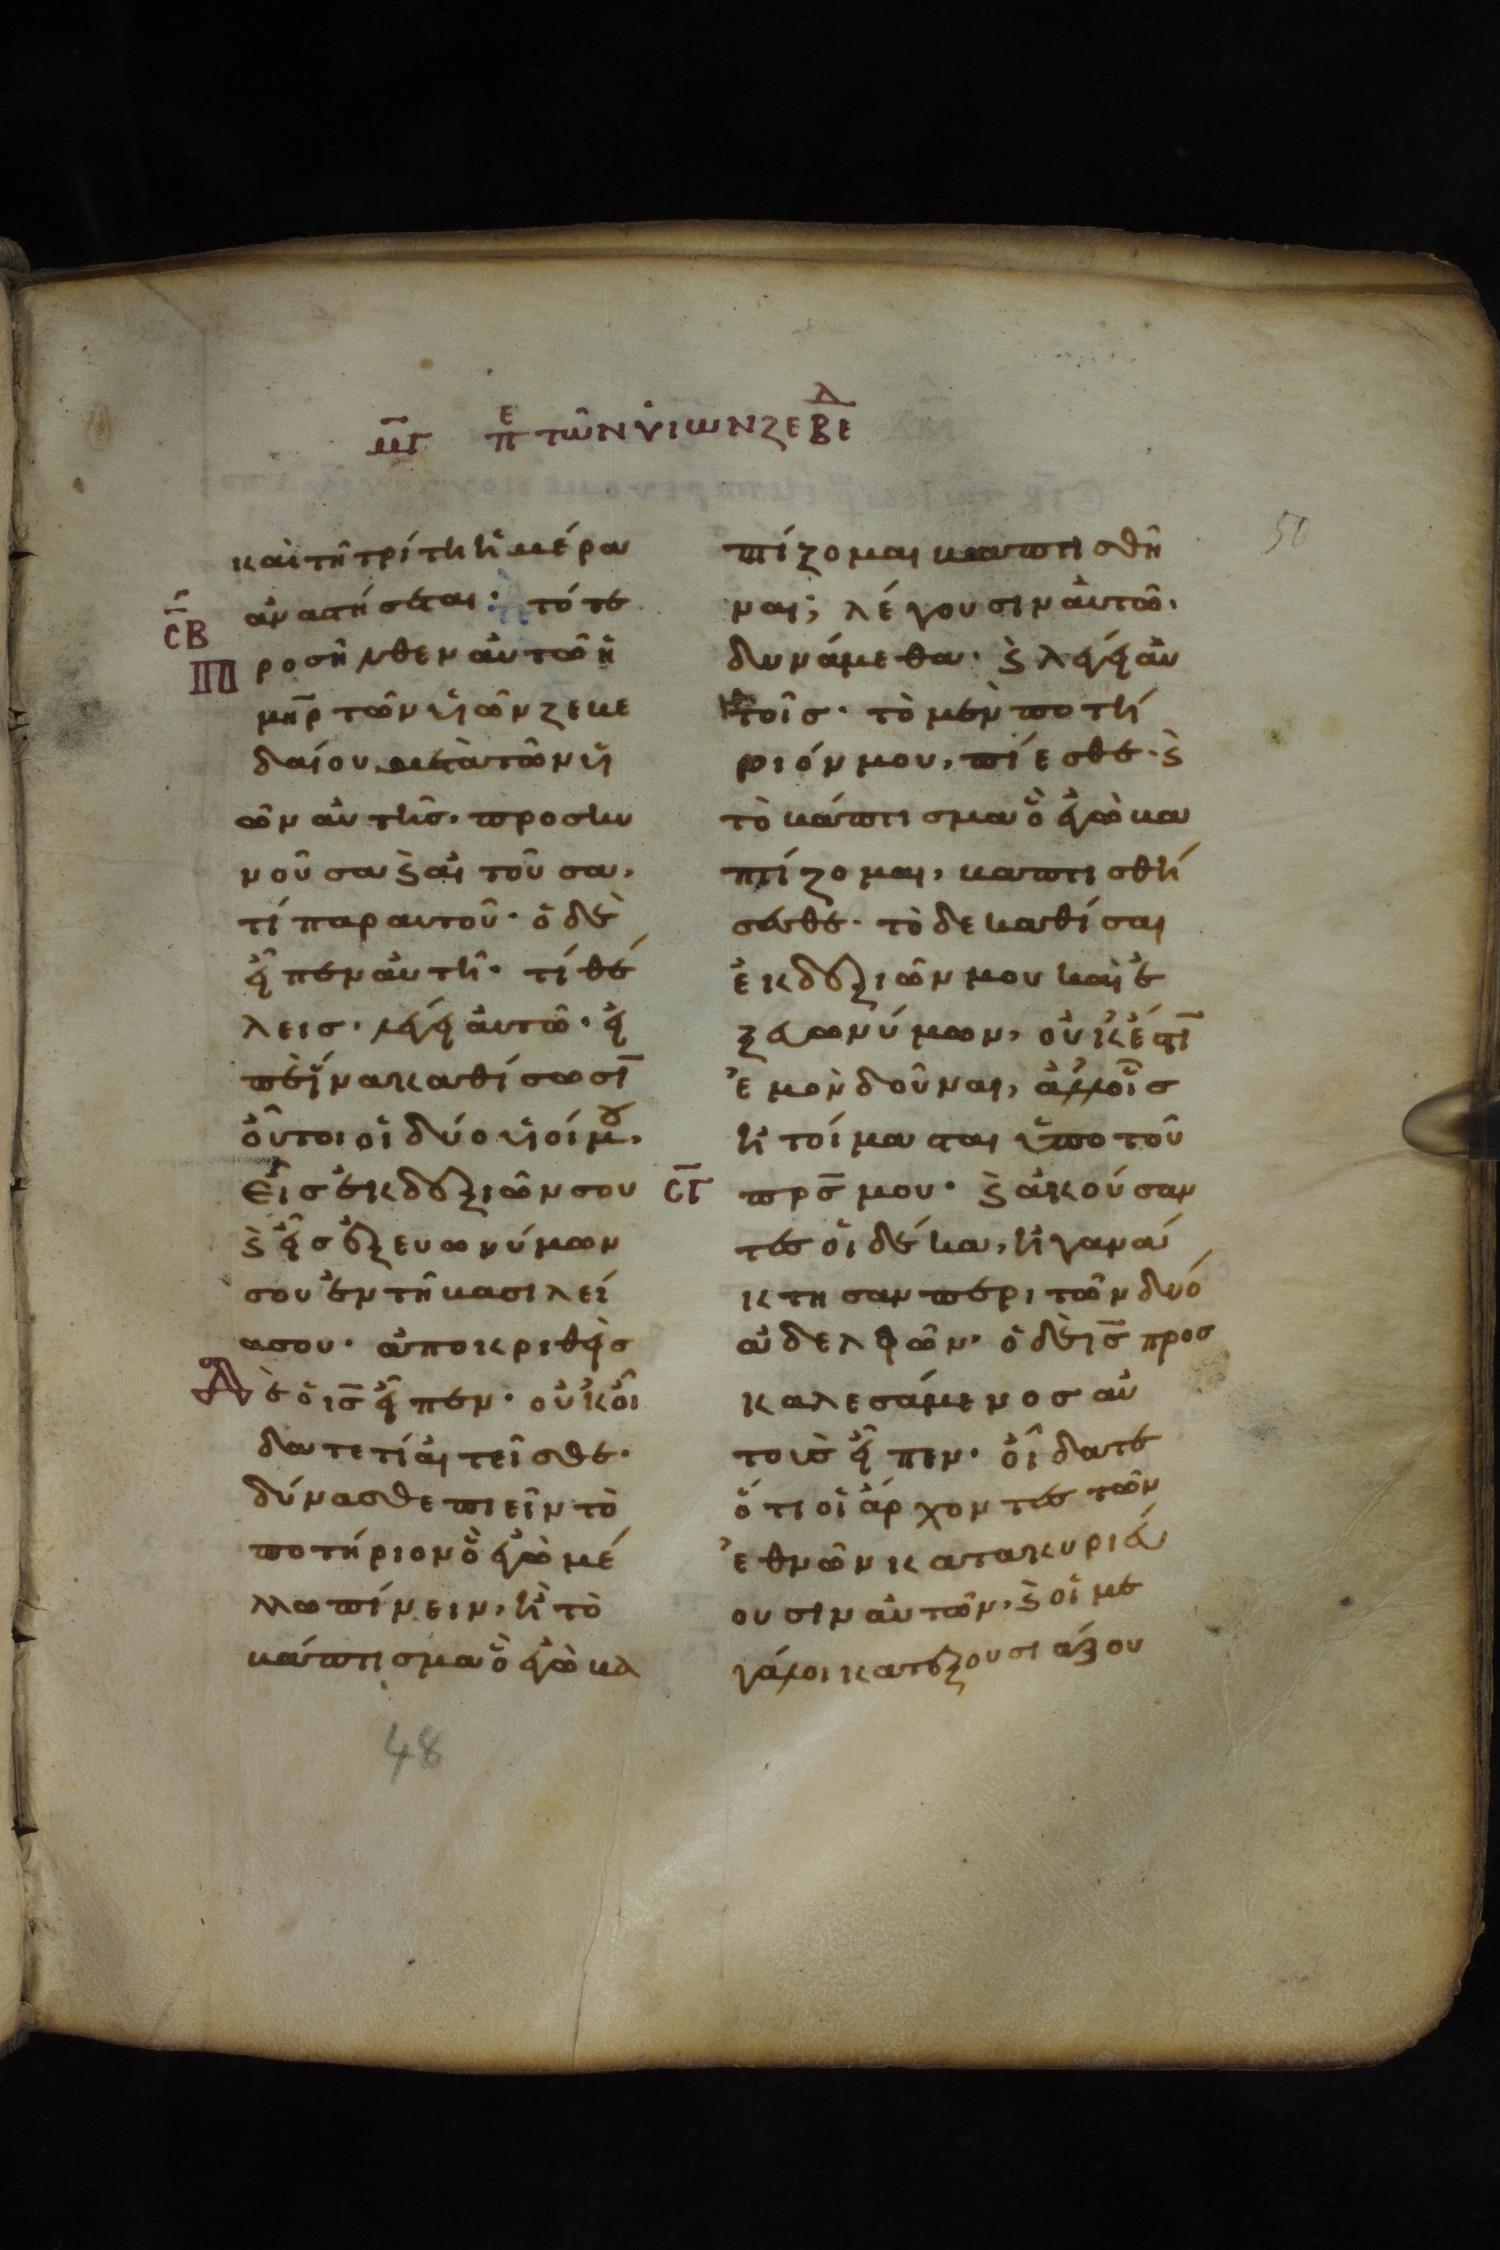 μγ πε τῶν υἱων ζεβεδ
50
και τῆ τρίτη ἡμέρα
ἀναστήσεται· τότε
σβ
Προσῆλθεν αὐτῶ ἡ
μηρ τῶν υἱῶν ζεβε
δαίου μετὰ τῶν υἱ
ῶν αὐτῆσ. προσκυ
νοῦσα καὶ αἰτοῦσα,
τί παραυτοῦ· ὁ δὲ
εἶπεν αὐτῆ· τί θέ
λεισ· λέγει αὐτῶ· εἰ
πὲ ἵνα καθίσωσι
οὗτοι οἱ δύο υἱοί μου,
Εἷσ ἐκ δεξιῶν σου
καὶ εἷσ ἐξ ευωνύμων
σου ἐν τῆ βασιλεί
α σου· ἀποκριθεὶσ
Δὲ ὁ ισ εἶπεν· οὐκ οἴ
δατε τί αἰτεῖσθε·
δύνασθε πιεῖν τὸ
ποτήριον ὃ ἐγὼ μέ
λλω πίνειν, ἢ τὸ
βάπτισμα ὃ ἐγὼ βα
πτίζομαι βαπτισθῆ
ναι; λέγουσιν αὐτῶ.
δυνάμεθα· καὶ λέγει αὐ
τοῖσ· τὸ μὲν ποτή
ριόν μου, πίεσθε· καὶ
τὸ βάπτισμα ὃ ἐγὼ βα
πτίζομαι, βαπτισθή
σεσθε· τὸ δε καθίσαι
ἐκ δεξιῶν μου καὶ ἐ
ξ ευωνύμων, οὐκ ἔστι
ἐμὸν δοῦναι, ἀλλοἷσ
ἡτοίμασται ὑπο τοῦ
σγ
πρσ μου· καὶ ἀκούσαν
τεσ οἱ δέκα, ἠγανά
κτησαν περι τῶν δύο
ἀδελφῶν· ὁ δὲ ισ προσ
καλεσάμενοσ αὐ
τουσ εἶπεν· οἴδατε
ὅτι οἱ ἄρχοντεσ τῶν
ἐθνῶν κατακυριεύ
ουσιν αὐτῶν, καὶ οἱ με
γάλοι κατεξουσιάζου
48